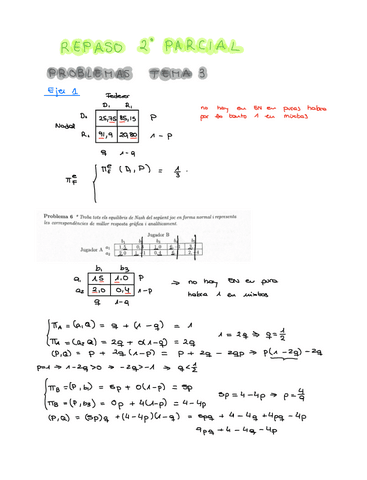 REPASO 2º PARCIAL
PROBLEMAS TEMA 3
Ejer 1
Federer
D₁ R₁
Nadal
D₁ P
R₁ 1-P
q 1-q
no hay en EN en puras habra
por lo tanto 1 en mixtas
Problema 6 * Troba tots els equilibris de Nash del següent joc en forma normal i representa
les correspondències de millor resposta gràfica i analíticament.
Jugador B
Jugador A
b₁ b₃
a₁ 1,5 1,0 P
a₂ 2,0 0,4 1-P
q 1-q
⇒ no hay EN en pura
habra 1 en mixtas
π_A = (a₁Q) = q + (1-q) = 1
π_A = (a₂Q) = 2q + 0(1-q) = 2q
1 = 2q ⇒ q = 1/2
(P,Q) = P + 2q(1-P) = P + 2q - 2qP ⇒ P(1-2q)-2q
P=1 ⇒ 1-2q>0 ⇒ -2q>-1 ⇒ q<1/2
π_B = (P,b₁) = 5P + 0(1-P) = 5P
π_B = (P,b₃) = 0P + 4(1-P) = 4-4P
5P = 4-4P ⇒ P = 4/9
(P,Q) = (5P)q + (4-4P)(1-q) = 5Pq + 4 - 4q + 4Pq - 4P
9Pq + 4 - 4q - 4P